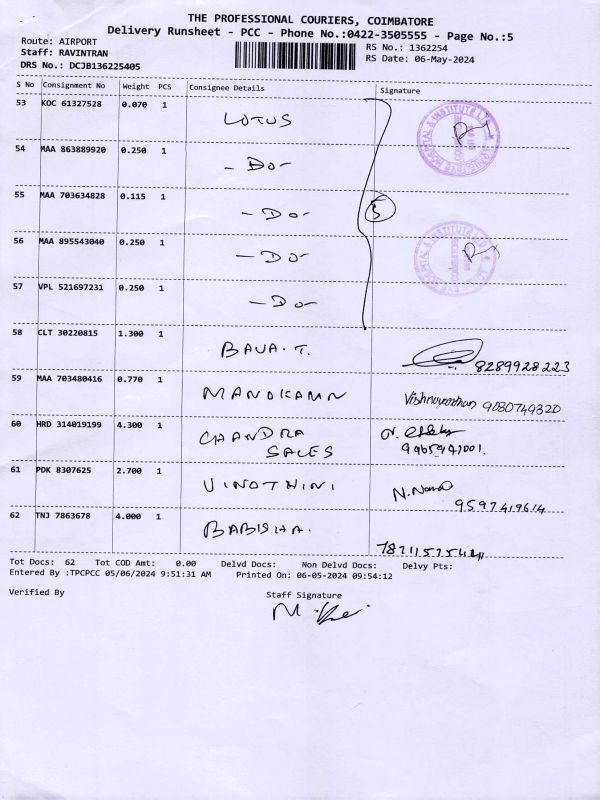 THE PROFESSIONAL COURIERS, COIMBATORE
Delivery Runsheet - PCC - Phone No.:0422-3505555 - Page No.:5
Route: AIRPORT
Staff: RAVINTRAN
DRS No.: DCJB136225405
RS No.: 1362254
RS Date: 06-May-2024
S No Consignment No Weight PCS Consignee Details Signature
53 KOC 61327528 0.070 1 LOTUS
54 MAA 863889920 0.250 1 - Do -
55 MAA 703634828 0.115 1 - Do -
5
56 MAA 895543040 0.250 1 - Do -
57 VPL 521697231 0.250 1 - Do -
58 CLT 30220815 1.300 1 BAVA.T. 8289928223
59 MAA 703480416 0.770 1 MANOKARAN 9080749320
60 HRD 314019199 4.300 1 CHANDRA
SALES
61 PDK 8307625 2.700 1 VINOTHINI
9597419614
62 TNJ 7863678 4.000 1 BABISHA.
Tot Docs: 62 Tot COD Amt: 0.00 Delvd Docs: Non Delvd Docs: Delvy Pts:
Entered By :TPCPCC 05/06/2024 9:51:31 AM Printed On: 06-05-2024 09:54:12
Verified By Staff Signature